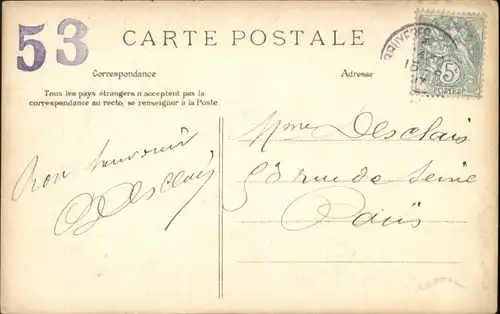 53
CARTE POSTALE
Correspondance
Adresse
Tous les pays étrangers n'acceptent pas la
correspondance au recto, se renseigner à la Poste.
5c
POSTES
Bon souvenir
Desclais
Mme Desclais
53 rue de Seine
Paris